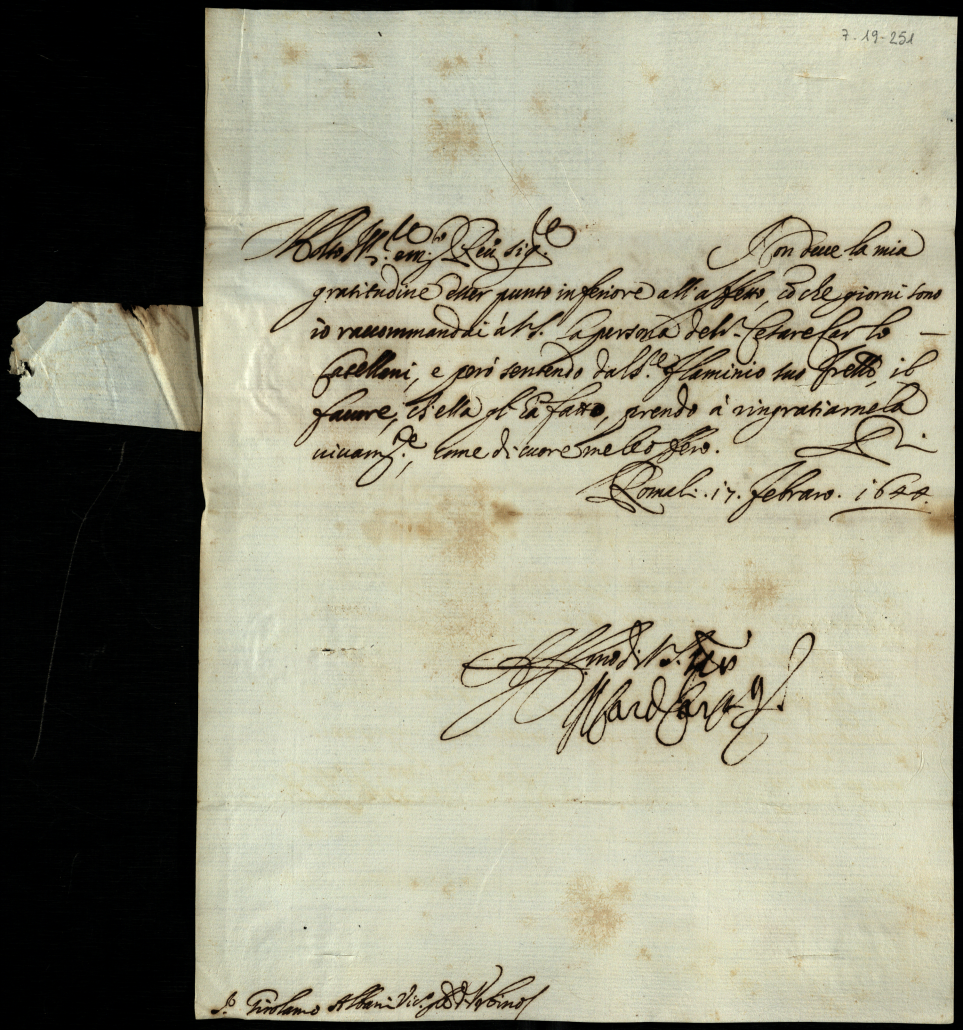 7.19-251
Molto Ill.re e m.to R.do sig.re Non deve la mia
gratitudine esser punto inferiore all'affetto, cō che giorni sono
io raccommandai à V.S. la persona del S.r Cesare Carlo
Castelloni, e però sentendo dal S.re Flaminio suo frēllo, il
favore, ch'ella gl'hà fatto, prendo à ringratiarnela
vivam.te, come di cuore me le offero.
Roma li .17. febraro. 1644.
Aff.mo di V.S.
Il Card
S.r Girolamo Albani Vic. d'Urbino